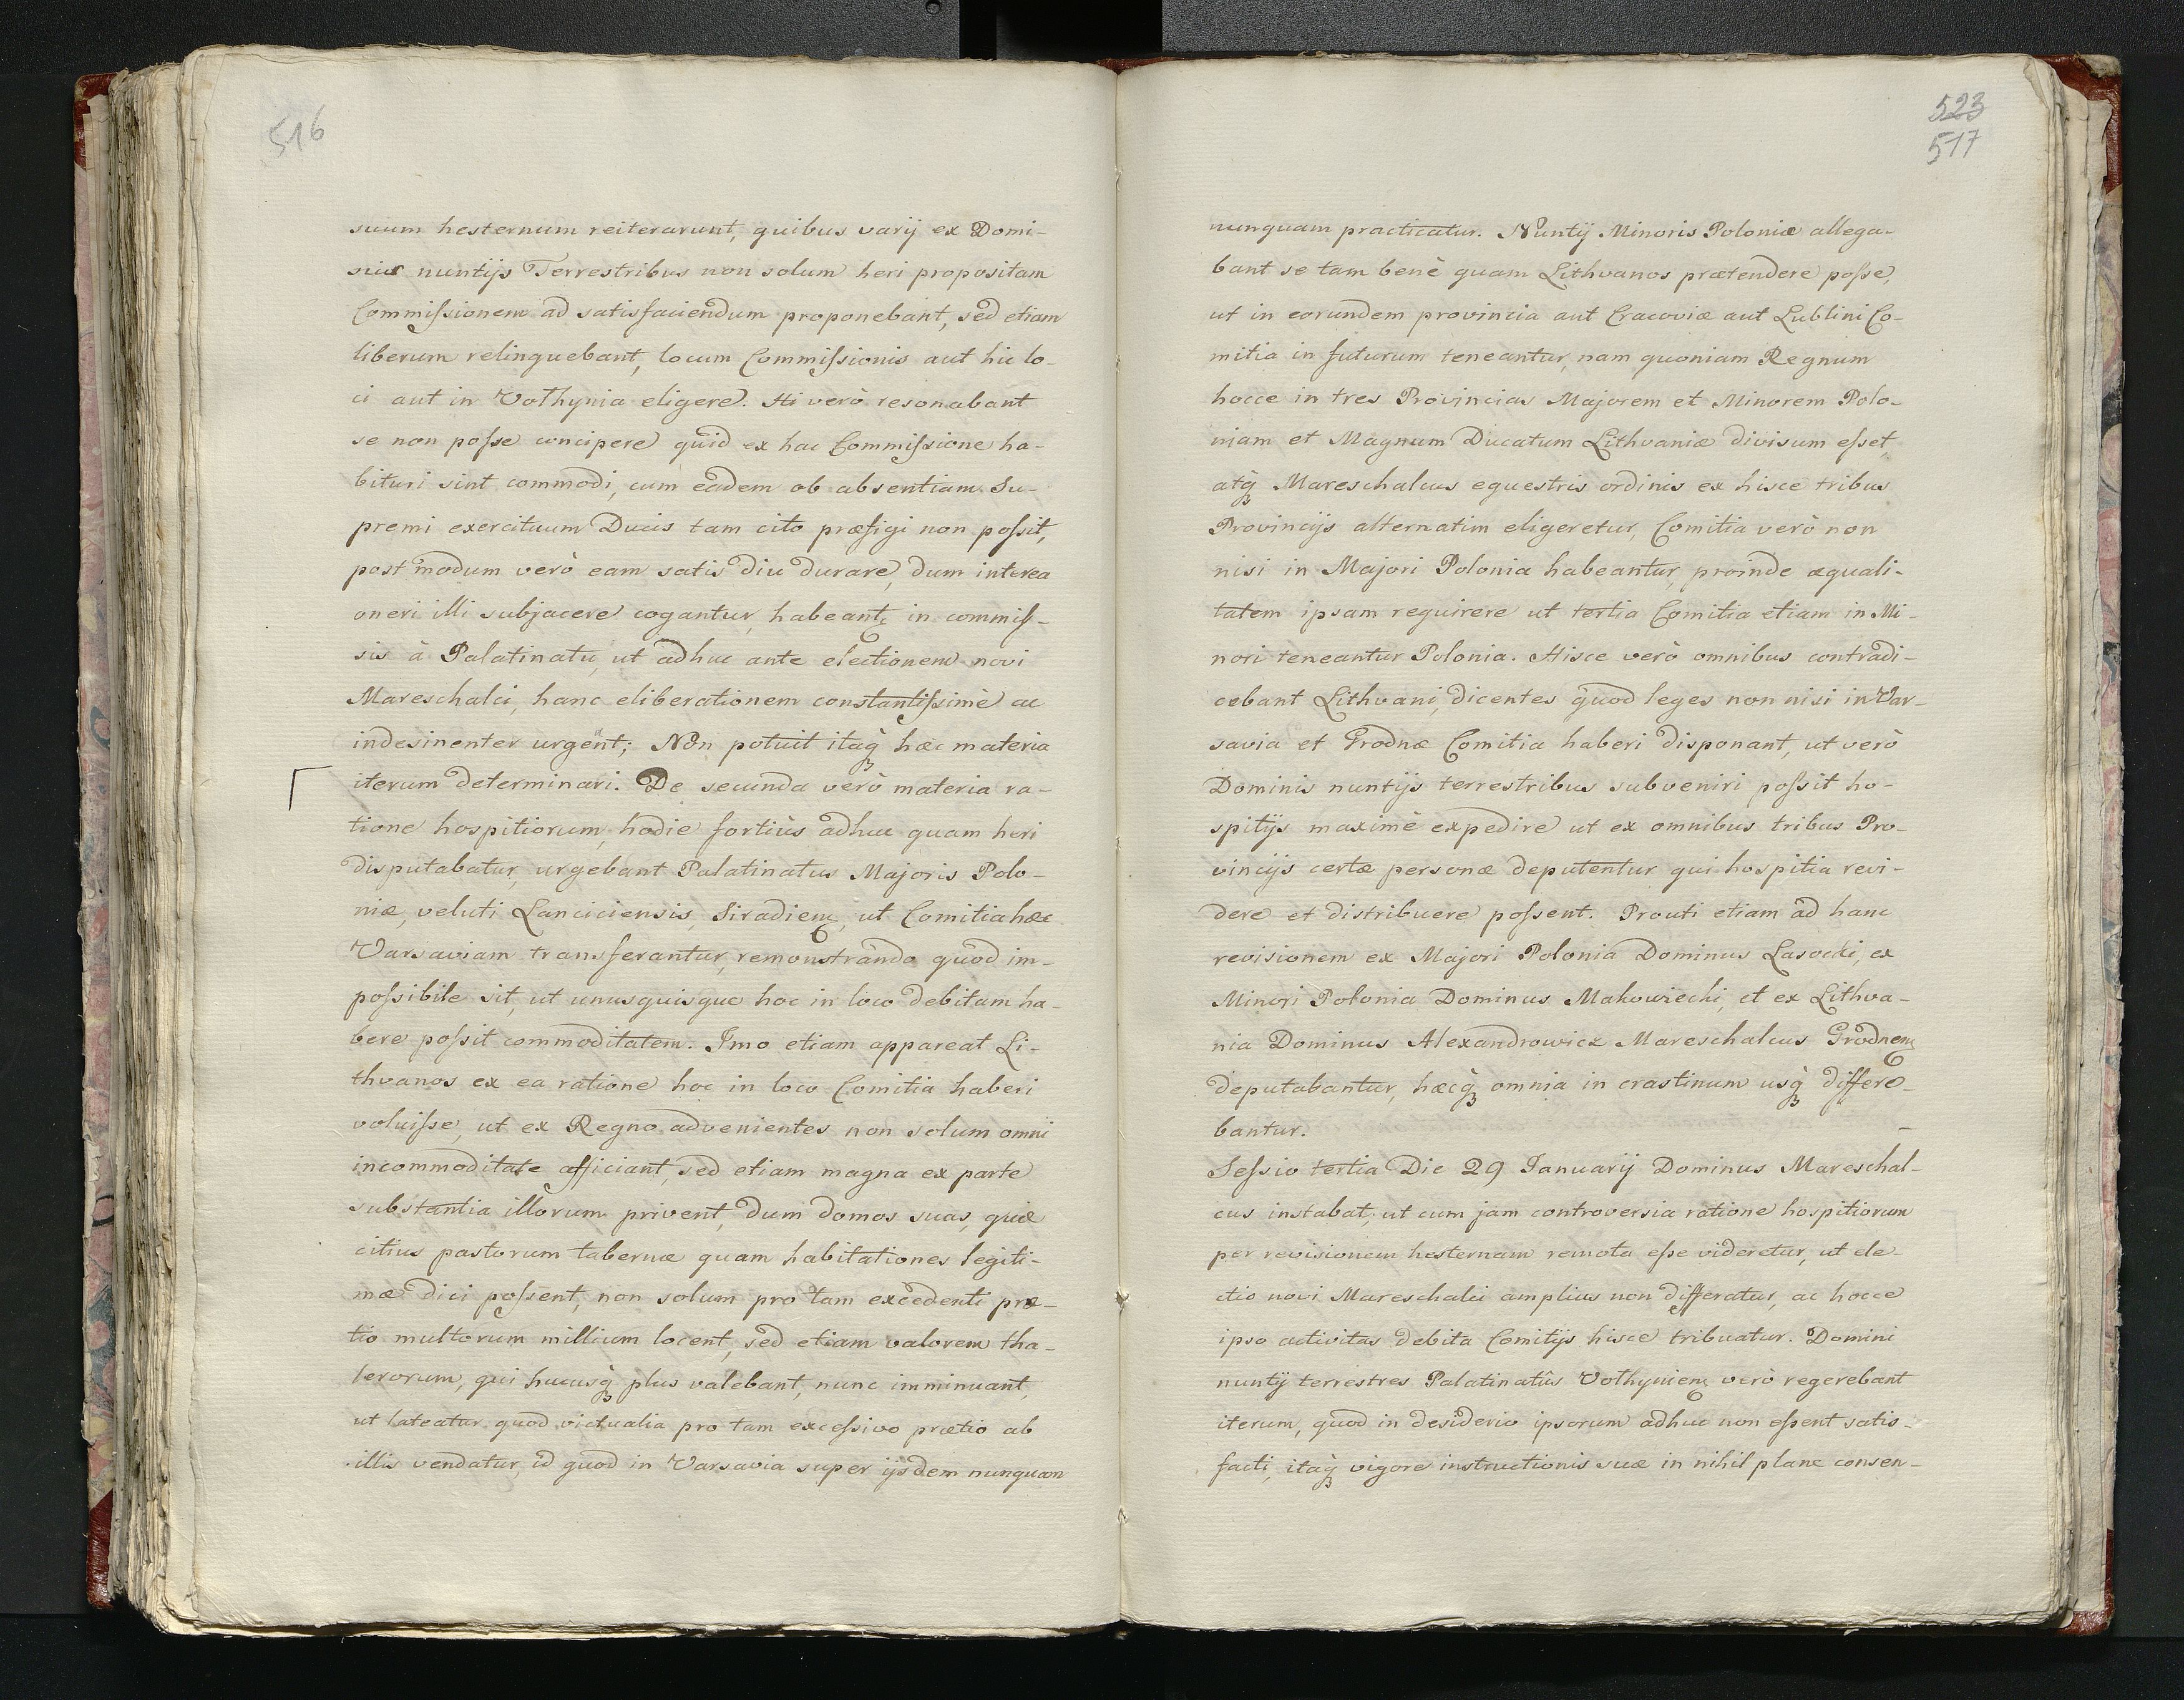 516
suum hesternum reiterarunt, quibus varij ex Domi-
nis nuntijs Terrestribus non solum heri propositam
Commissionem ad satisfaciendum proponebant, sed etiam
liberum relinquebant, locum Commissionis aut hic lo-
ci aut in Volhynia eligere. Hi verò resonabant
se non posse concipere quid ex hac Commissione ha-
bituri sint commodi, cum eadem ob absentiam Su-
premi exercituum Ducis tam cito præfigi non possit,
post modum verò eam satis diu durare, dum interea
oneri illi subjacere cogantur, habeantq in commis-
sis à Palatinatu, ut adhuc ante electionem novi
Mareschalci, hanc eliberationem constantissimè ac
indesinenter urgent; Non potuit itaq hæc materia
iterum determinari. De secunda verò materia ra-
tione hospitiorum, hodie fortiùs adhuc quam heri
disputabatur, urgebant Palatinatus Majoris Polo-
niæ, veluti Lanciciensis, Siradien, ut Comitia hæc
Varsaviam transferantur, remonstrando quod im-
possibile sit, ut unusquisque hoc in loco debitam ha-
bere possit commoditatem. Imo etiam appareat Li-
thvanos ex ea ratione hoc in loco Comitia haberi
voluisse, ut ex Regno advenientes non solum omni
incommoditate afficiant, sed etiam magna ex parte
substantia illorum privent, dum domos suas, quæ
citius pastorum tabernæ quam habitationes legiti-
mæ dici possent, non solum pro tam excedenti præ-
tio multorum millium locent, sed etiam valorem tha-
lerorum, qui hucusq plus valebant, nunc imminuant,
ut lateatur quod victualia pro tam excessivo prætio ab
illis vendatur, id quod in Varsavia super ijsdem nunquam
523
517
nunquam practicatur. Nuntij Minoris Poloniæ allega-
bant se tam benè quam Lithvanos prætendere posse,
ut in eorundem provincia aut Cracoviæ aut Lublini Co-
mitia in futurum teneantur, nam quoniam Regnum
hocce in tres Provincias Majorem et Minorem Polo-
niam et Magnum Ducatum Lithvaniæ divisum esset,
atq Mareschalcus equestris ordinis ex hisce tribus
Provincijs alternatim eligeretur, Comitia verò non
nisi in Majori Polonia habeantur, proinde æquali-
tatem ipsam requirere ut tertia Comitia etiam in Mi-
nori teneantur Polonia. Hisce verò omnibus contradi-
cebant Lithvani, dicentes quod leges non nisi in Var-
savia et Grodnæ Comitia haberi disponant, ut verò
Dominis nuntijs terrestribus subveniri possit ho-
spitijs maximè expedire ut ex omnibus tribus Pro-
vincijs certæ personæ deputentur qui hospitia revi-
dere et distribuere possent. Prouti etiam ad hanc
revisionem ex Majori Polonia Dominus Lasocki, ex
Minori Polonia Dominus Makowiecki, et ex Lithva-
nia Dominus Alexandrowicz Mareschalcus Grodnen
deputabantur, hæcq omnia in crastinum usq differe-
bantur. –
Sessio tertia Die 29 Januarij Dominus Mareschal-
cus instabat, ut cum jam controversia ratione hospitiorum
per revisionem hesternam remota esse videretur, ut ele-
ctio novi Mareschalci amplius non differatur, ac hocce
ipso activitas debita Comitijs hisce tribuatur. Domini
nuntij terrestres Palatinatûs Volhynien verò regerebant
iterum, quod in desiderio ipsorum adhuc non essent satis-
facti, itaq vigore instructionis suæ in nihil plane consen-